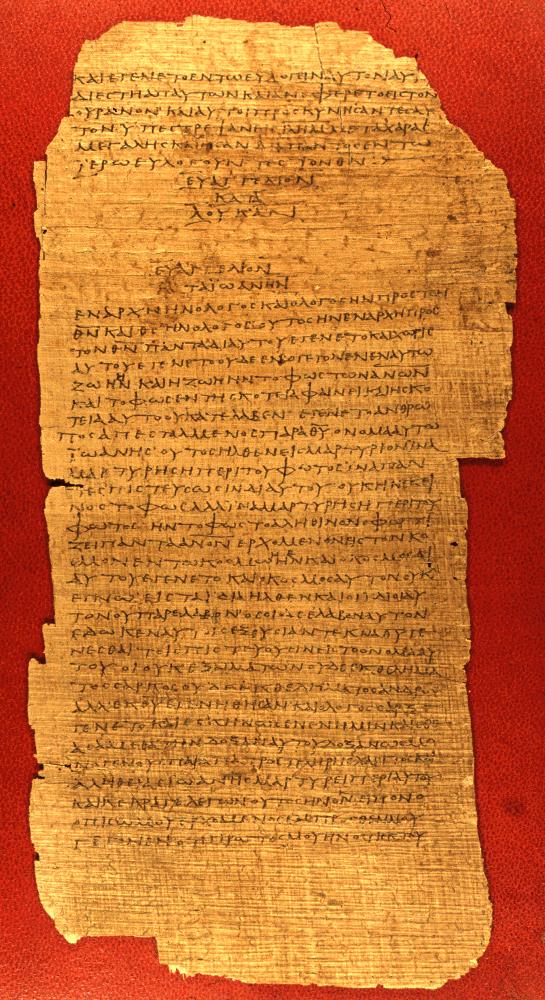 ΚΑΙΕΓΕΝΕΤΟΕΝΤΩΕΥΛΟΓΕΙΝΑΥΤΟΝΑΥ
ΔΙΕCΤΗΑΠΑΥΤΩΝΚΑΙΑΝΕΦΕΡΕΤΟΕΙCΤΟΝ
ΟΥΡΑΝΟΝ ΚΑΙΑΥΤΟΙΠΡΟCΚΥΝΗCΑΝΤΕCΑΥ
ΤΟΝΥΠΕCΤΡΕΨΑΝΕΙC ΜΕΤΑΧΑΡΑC
ΜΕΓΑΛΗCΚΑΙΗCΑΝ ΕΝΤΩ
ΪΕΡΩΕΥΛΟΓΟΥΝΤΕCΤΟΝΘΝ
ΕΥΑΓΓΕΛΙΟΝ
ΚΑΤΑ
ΛΟΥΚΑΝ
ΕΥΑΓΓΕΛΙΟΝ
ΚΑΤΑΪΩΑΝΗΝ
ΕΝΑΡΧΗΗΝΟΛΟΓΟCΚΑΙΟΛΟΓΟCΗΝΠΡΟCΤΟΝ
ΘΝΚΑΙΘCΗΝΟΛΟΓΟCΟΥΤΟCΗΝΕΝΑΡΧΗΠΡΟC
ΤΟΝΘΝ ΠΑΝΤΑΔΙΑΥΤΟΥΕΓΕΝΕΤΟΚΑΙΧΩΡΙC
ΑΥΤΟΥΕΓΕΝΕΤΟΟΥΔΕΕΝΟΓΕΓΟΝΕΝΕΝΑΥΤΩ
ΖΩΗΝΚΑΙΗΖΩΗΗΝΤΟΦΩCΤΩΝΑΝΩΝ
ΚΑΙΤΟΦΩCΕΝΤΗCΚΟΤΙΑΦΑΙΝΕΙΚΑΙΗCΚΟ
ΤΕΙΑΑΥΤΟΟΥΚΑΤΕΛΑΒΕΝ ΕΓΕΝΕΤΟΑΝΘΡΩ
ΠΟCΑΠΕCΤΑΛΜΕΝΟCΠΑΡΑΘΥΟΝΟΜΑΑΥΤΩ
ΪΩΑΝΗC ΟΥΤΟCΗΛΘΕΝΕΙCΜΑΡΤΥΡΙΟΝΪΝΑ
ΜΑΡΤΥΡΗCΗΠΕΡΙΤΟΥΦΩΤΟCΪΝΑΠΑΝ
ΤΕCΠΙCΤΕΥCΩCΙΝΔΙΑΥΤΟΥ ΟΥΚΗΝΕΚΕΙ
ΝΟCΤΟΦΩCΑΛΛΙΝΑΜΑΡΤΥΡΗCΗΠΕΡΙΤΟΥ
ΦΩΤΟC ΗΝΤΟΦΩCΤΟΑΛΗΘΙΝΟΝΟΦΩΤΙ
ΖΕΙΠΑΝΤΑΑΝΟΝΕΡΧΟΜΕΝΟΝΕΙCΤΟΝΚΟ
CΜΟΝΕΝΤΩΚΟCΜΩΗΝΚΑΙΟΚΟCΜΟCΔΙ
ΑΥΤΟΥΕΓΕΝΕΤΟ ΚΑΙΟΚΟCΜΟCΑΥΤΟΝΟΥΚ
ΕΓΝΩ ΕΙCΤΑΪΔΙΑΗΛΘΕΝΚΑΙΟΙΪΔΙΟΙΑΥ
ΤΟΝΟΥΠΑΡΕΛΑΒΟΝ ΟCΟΙΔΕΕΛΑΒΟΝΑΥΤΟΝ
ΕΔΩΚΕΝΑΥΤΟΙCΕΞΟΥCΙΑΝΤΕΚΝΑΘΥΓΕ
ΝΕCΘΑΙΤΟΙCΠΙCΤΕΥΟΥCΙΝΕΙCΤΟΟΝΟΜΑΑΥ
ΤΟΥ ΟΙΟΥΚΕΞΑΙΜΑΤΩΝΟΥΔΕΕΚΘΕΛΗΜΑ
ΤΟCCΑΡΚΟCΟΥΔΕΕΚΘΕΛΗΜΑΤΟCΑΝΔΡΟC
ΑΛΛΕΚΘΥΕΓΕΝΗΘΗCΑΝΚΑΙΟΛΟΓΟCCΑΡΞΕ
ΓΕΝΕΤΟΚΑΙΕCΚΗΝΩCΕΝΕΝΗΜΙΝΚΑΙΕΘΕ
ΑCΑΜΕΘΑΤΗΝΔΟΞΑΝΑΥΤΟΥΔΟΞΑΝΩCΜΟ
ΝΟΓΕΝΟΥCΠΑΡΑΠΑΤΡΟCΠΛΗΡΗCΧΑΡΙΤΟCΚΑΙ
ΑΛΗΘΕΙΑC ΪΩΑΝΗCΜΑΡΤΥΡΕΙΠΕΡΙΑΥΤΟΥ
ΚΑΙΚΕΚΡΑΓΕΛΕΓΩΝΟΥΤΟCΗΝΟΝΕΙΠΟΝΟ
ΟΠΙCΩΜΟΥΕΡΧΟΜΕΝΟCΕΜΠΡΟCΘΕΝΜΟΥ
ΓΕΓΟΝΕΝΟΤΙΠΡΩΤΟCΜΟΥΗΝΟΤΙΕΚΤΟΥ